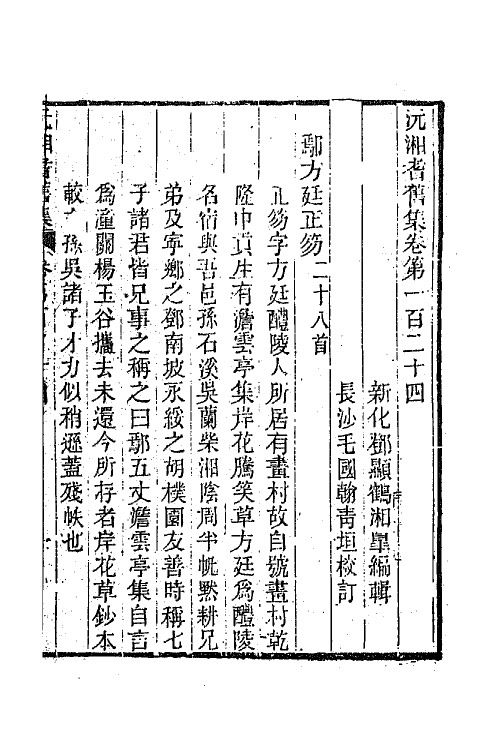 沅湘耆舊集卷第一百二十四
新化鄧顯鶴湘臯編輯
長沙毛國翰青垣校訂
鄢方廷正笏二十八首
正笏字方廷醴陵人所居有畫村故自號畫村乾
隆中貢生有澹雲亭集岸花騰笑草方廷爲醴陵
名宿與吾邑孫石溪吳蘭柴湘陰周半帆默耕兄
弟及寧鄉之鄧南坡永綏之胡樸園友善時稱七
子諸君皆兄事之稱之曰鄢五丈澹雲亭集自言
爲潼關楊玉谷攜去未還今所存者岸花草鈔本
較孫吳諸子才力似稍遜蓋殘帙也
沅湘耆舊集